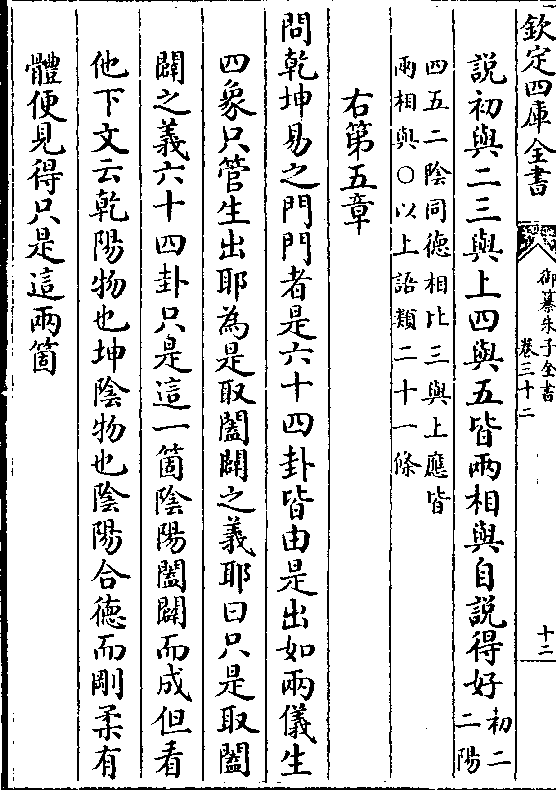 欽定四庫全書
御纂朱子全書
卷三十二
十二
說初與二三與上四與五皆兩相與自說得好
初二二陽
四五二陰同德相比三與上應皆
兩相與○以上語類二十一條
右第五章
問乾坤易之門門者是六十四卦皆由是出如兩儀生
四象只管生出耶為是取闔闢之義耶曰只是取闔
闢之義六十四卦只是這一箇陰陽闔闢而成但看
他下文云乾陽物也坤陰物也陰陽合德而剛柔有
體便見得只是這兩箇